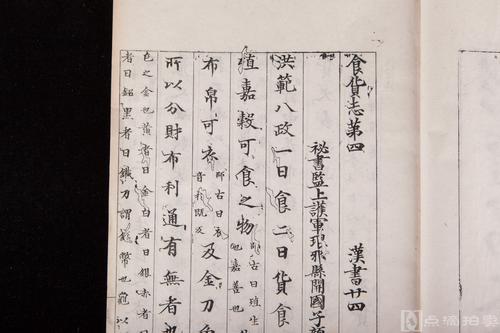 食貨志第四 漢書廿四
祕書監上護軍琅邪縣開國子顏
洪範八政一曰食二曰貨食
殖嘉穀可食之物 師古曰殖生
也嘉善也
布帛可衣 師古曰衣
音於既反 及金刀魚
所以分財布利通有無者也
色之金也黃者曰金白者曰銀赤者曰
者曰鉛黑者曰鐵刀謂錢幣也龜以